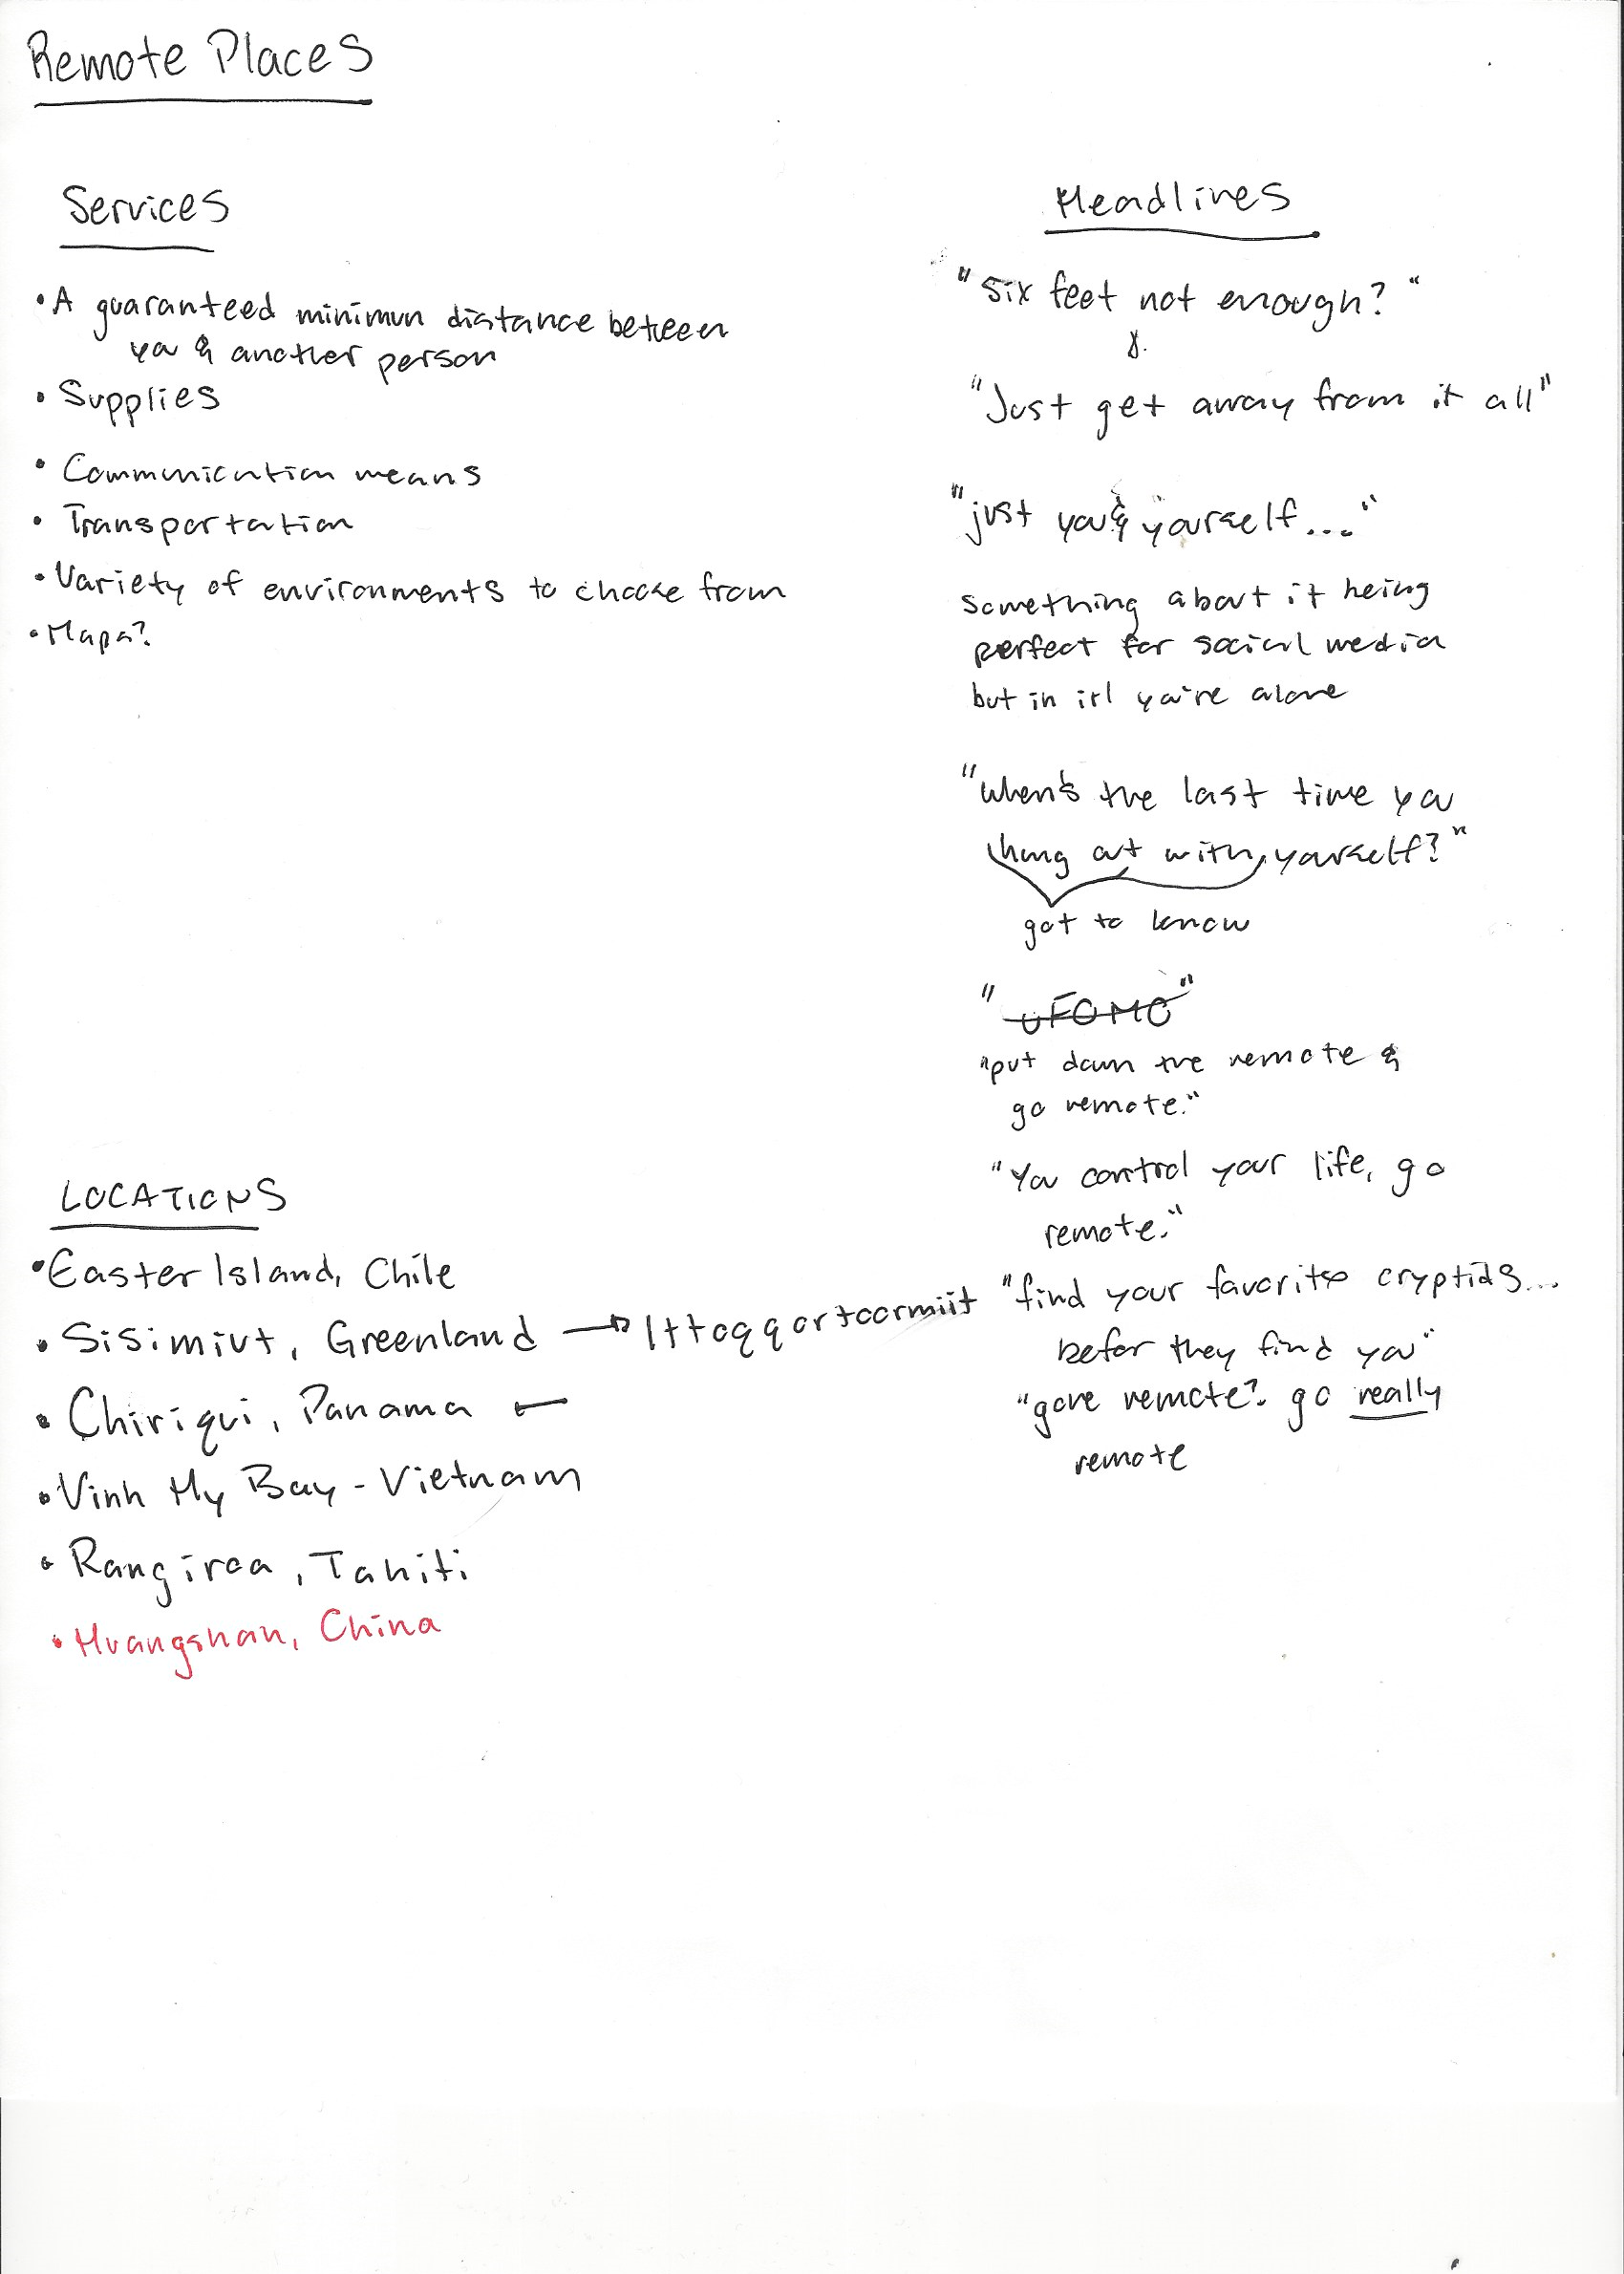 Remote Places
Services
• A guaranteed minimum distance between
you & another person
• Supplies
• Communication means
• Transportation
• Variety of environments to choose from
• Maps?
LOCATIONS
• Easter Island, Chile
• Sisimiut, Greenland → Ittoqqortoormiit
• Chiriqui, Panama
• Vinh Hy Bay - Vietnam
• Rangiroa, Tahiti
• Huangshan, China
Headlines
"Six feet not enough?"
&
"Just get away from it all"
"just you & yourself..."
something about it being
perfect for social media
but in irl you're alone
"when's the last time you
hung out with yourself?"
got to know
"uFOMO"
"put down the remote &
go remote."
"You control your life, go
remote."
"find your favorite cryptids...
before they find you"
"gone remote? go really
remote